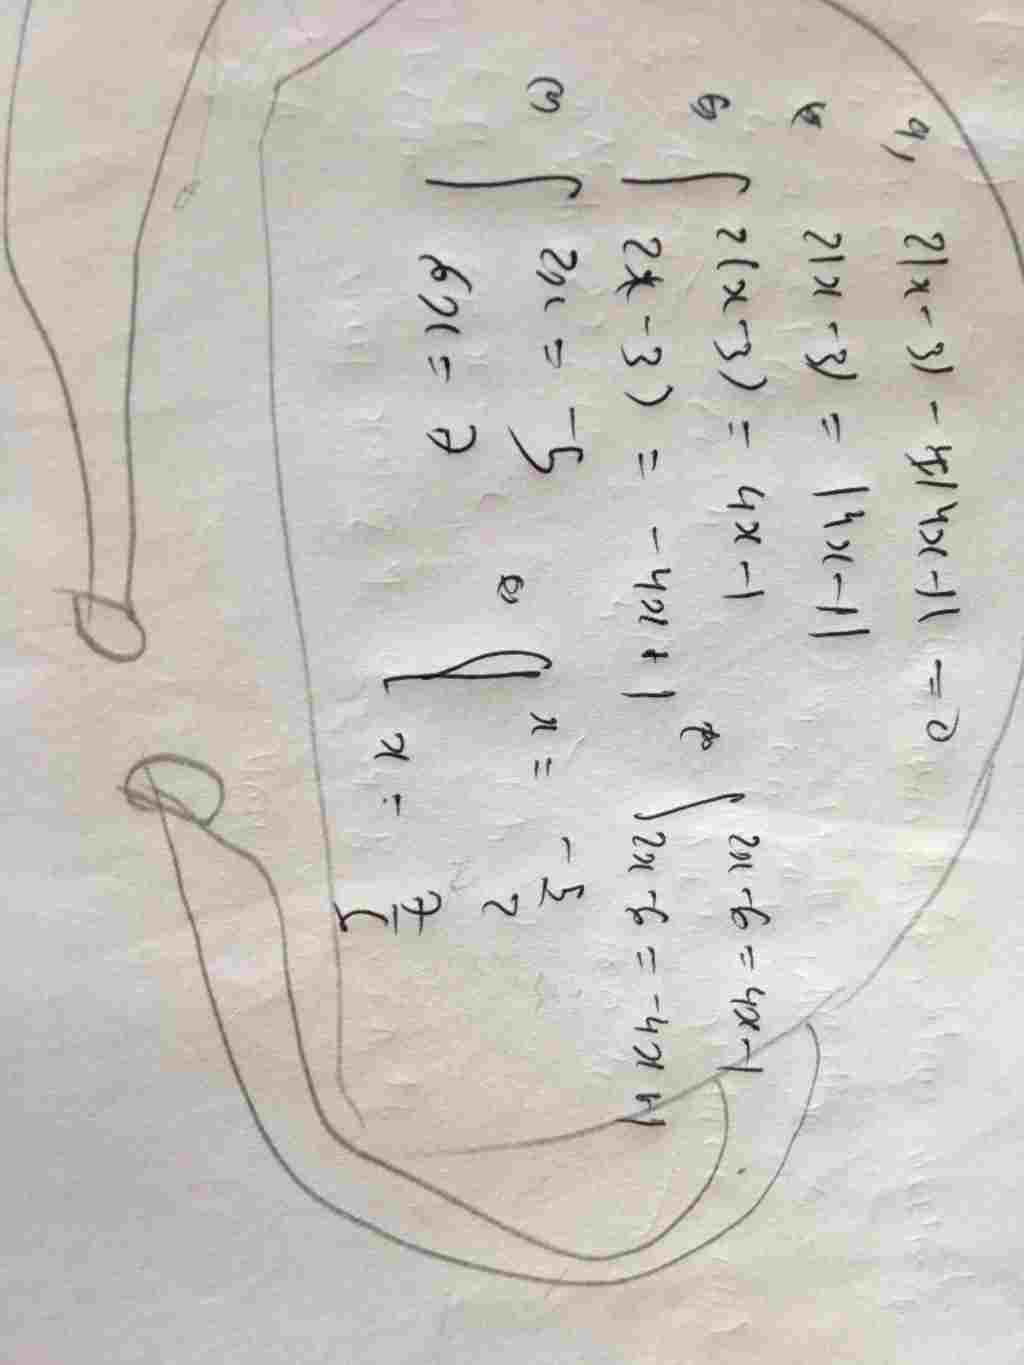 a, 2|x-3| - |4x-1| = 0
⇔ 2|x-3| = |4x-1|
⇔ [ 2(x-3) = 4x-1
2(x-3) = -4x+1
⇔ [ 2x-6 = 4x-1
2x-6 = -4x+1
⇔ [ 2x = -5
6x = 7
⇔ [ x = -5/2
x = 7/5